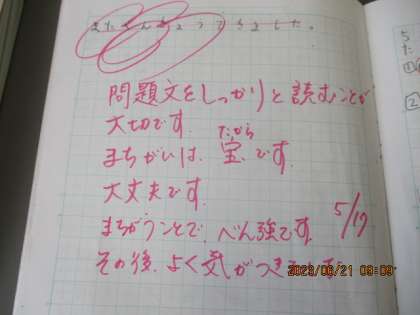 またべんきょうできました。
問題文をしっかりと読むことが
大切です。
まちがいは、宝です。
たから
大丈夫です。
まちがうことで、べん強です。
5/19
その後、よく気がつきました。
2023/06/21 09:09
5
た
①
2